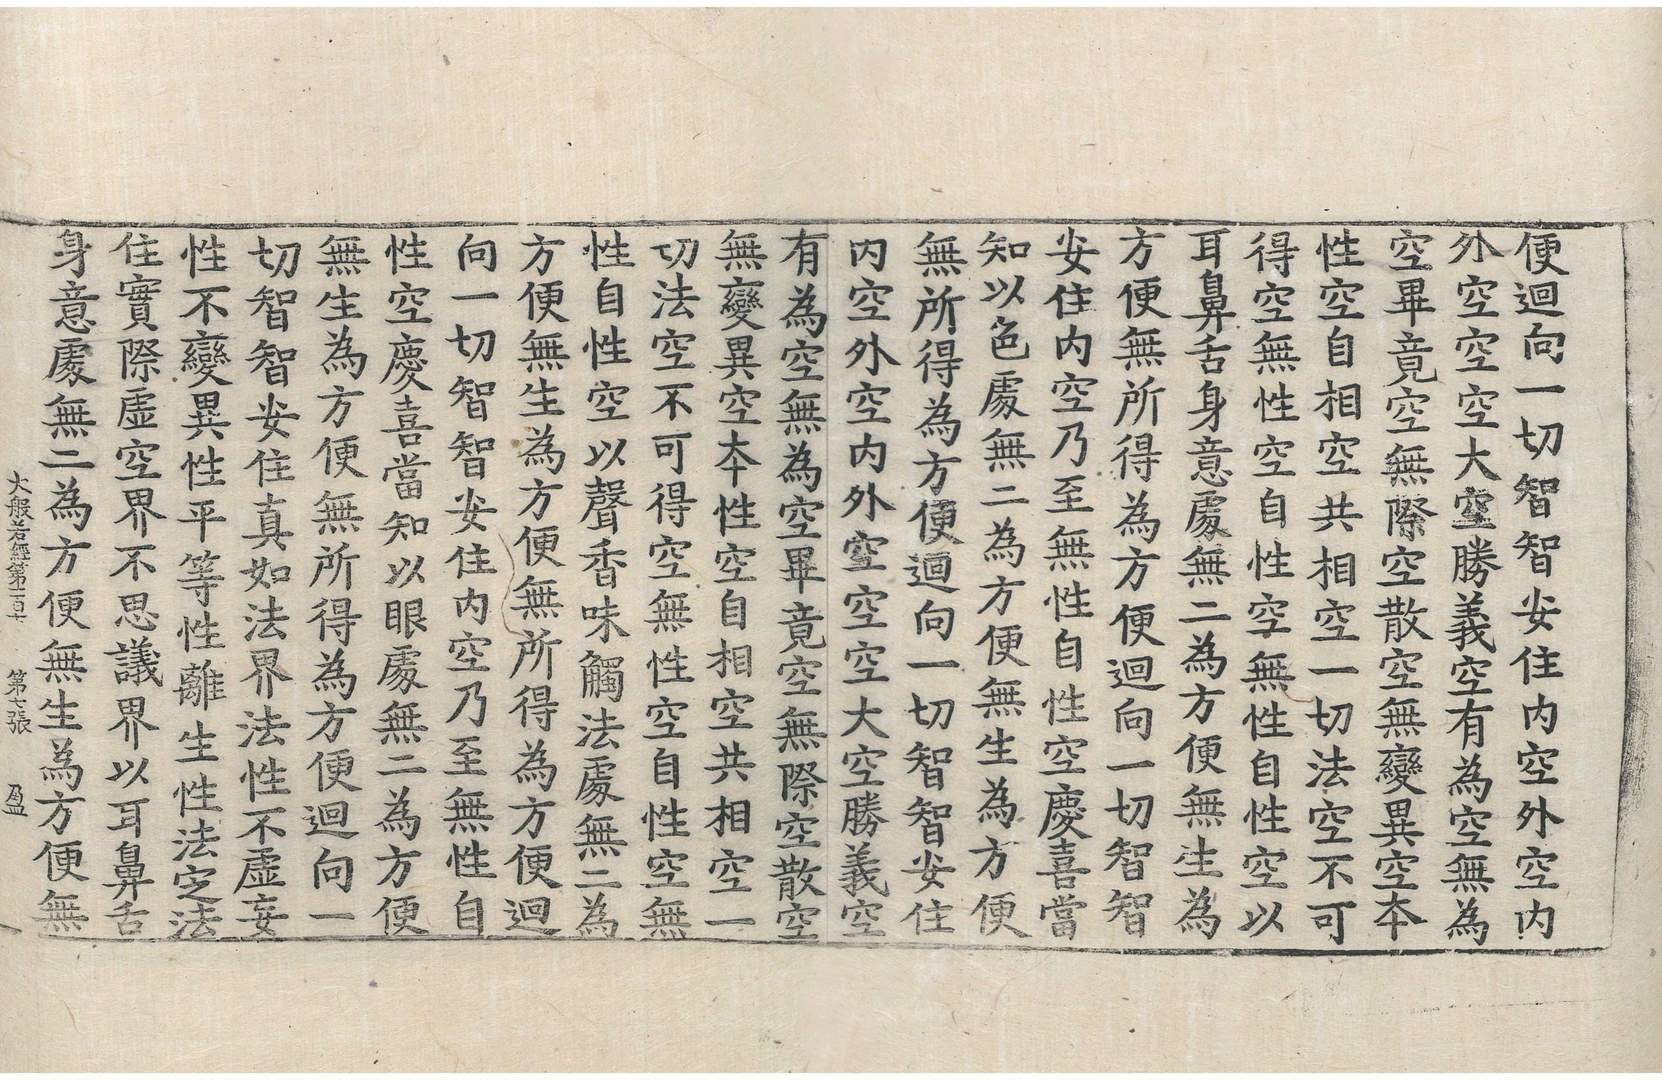 便迴向一切智智安住内空外空内
外空空空大空勝義空有為空無為
空畢竟空無際空散空無變異空本
性空自相空共相空一切法空不可
得空無性空自性空無性自性空以
耳鼻舌身意處無二為方便無生為
方便無所得為方便迴向一切智智
安住内空乃至無性自性空慶喜當
知以色處無二為方便無生為方便
無所得為方便迴向一切智智安住
内空外空内外空空空大空勝義空
有為空無為空畢竟空無際空散空
無變異空本性空自相空共相空一
切法空不可得空無性空自性空無
性自性空以聲香味觸法處無二為
方便無生為方便無所得為方便迴
向一切智智安住内空乃至無性自
性空慶喜當知以眼處無二為方便
無生為方便無所得為方便迴向一
切智智安住真如法界法性不虛妄
性不變異性平等性離生性法定法
住實際虛空界不思議界以耳鼻舌
身意處無二為方便無生為方便無
大般若經第一百 第七張 盈